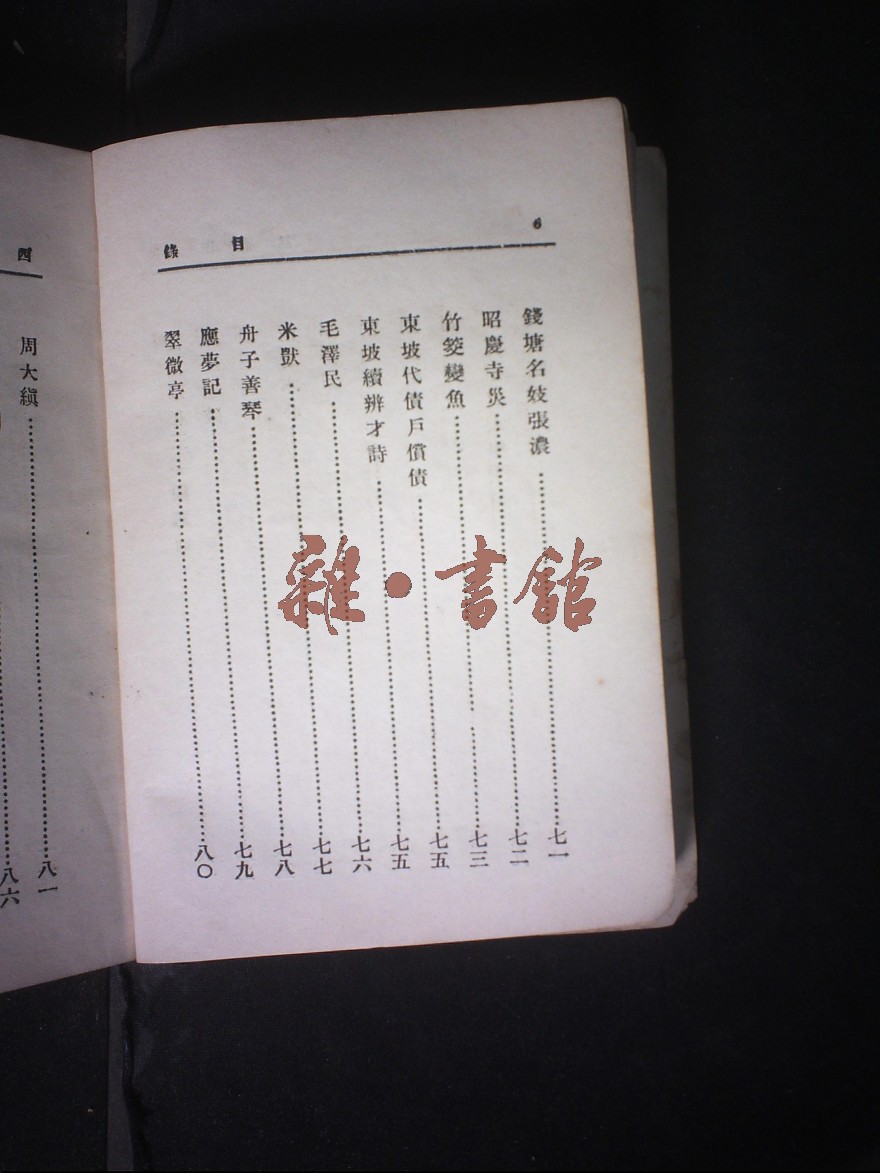 目錄 6
錢塘名妓張濃……七一
昭慶寺災……七二
竹筊變魚……七三
東坡代債戶償債……七五
東坡續辨才詩……七五
毛澤民……七六
米獃……七七
舟子善琴……七八
應夢記……七九
翠微亭……八〇
四
周大縝……八一
八六
雜·書館